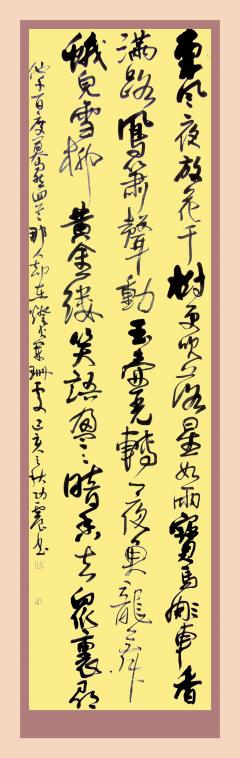 東風夜放花千樹更吹落星如雨寶馬雕車香
滿路鳳簫聲動玉壺光轉一夜魚龍舞
蛾兒雪柳黃金縷笑語盈〻暗香去眾裏尋
他千百度驀然回首那人却在燈火闌珊處己亥之秋功震書